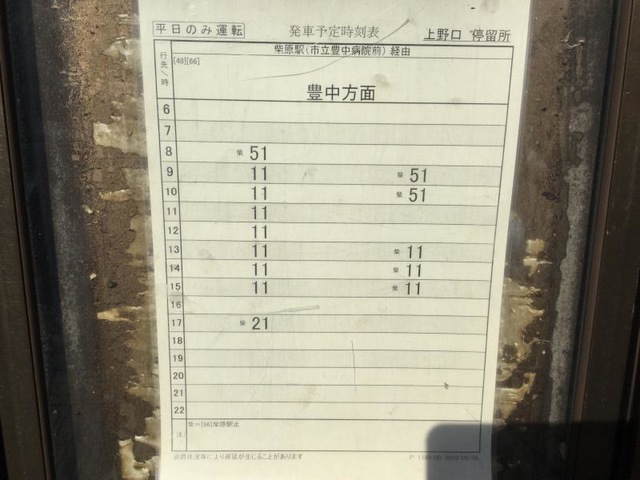 平日のみ運転 発車予定時刻表 上野口 停留所
柴原駅(市立豊中病院前) 経由
行先/時 [48][66]
豊中方面
6
7
8 柴 51
9 11 柴 51
10 11 柴 51
11 11
12 11
13 11 柴 11
14 11 柴 11
15 11 柴 11
16
17 柴 21
18
19
20
21
22
注 柴=[66]柴原駅止
道路状況等により遅延が生じることがあります